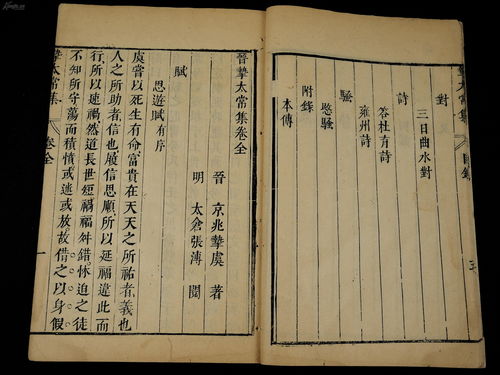 摯太常集 目錄
對
三日曲水對
詩
答杜育詩
雍州詩
騷
愍騷
附錄
本傳
晉摯太常集卷全
晉 京兆摯虞 著
明 太倉張溥 閱
賦
思遊賦有序
虞嘗以死生有命富貴在天天之所祐者義也
人之所助者信也履信思順所以延福違此而
行所以速禍然道長世短禍福舛錯怵迫之徒
不知所守蕩而積憤或迷或放故借之以身假
摯太常集 卷全
一